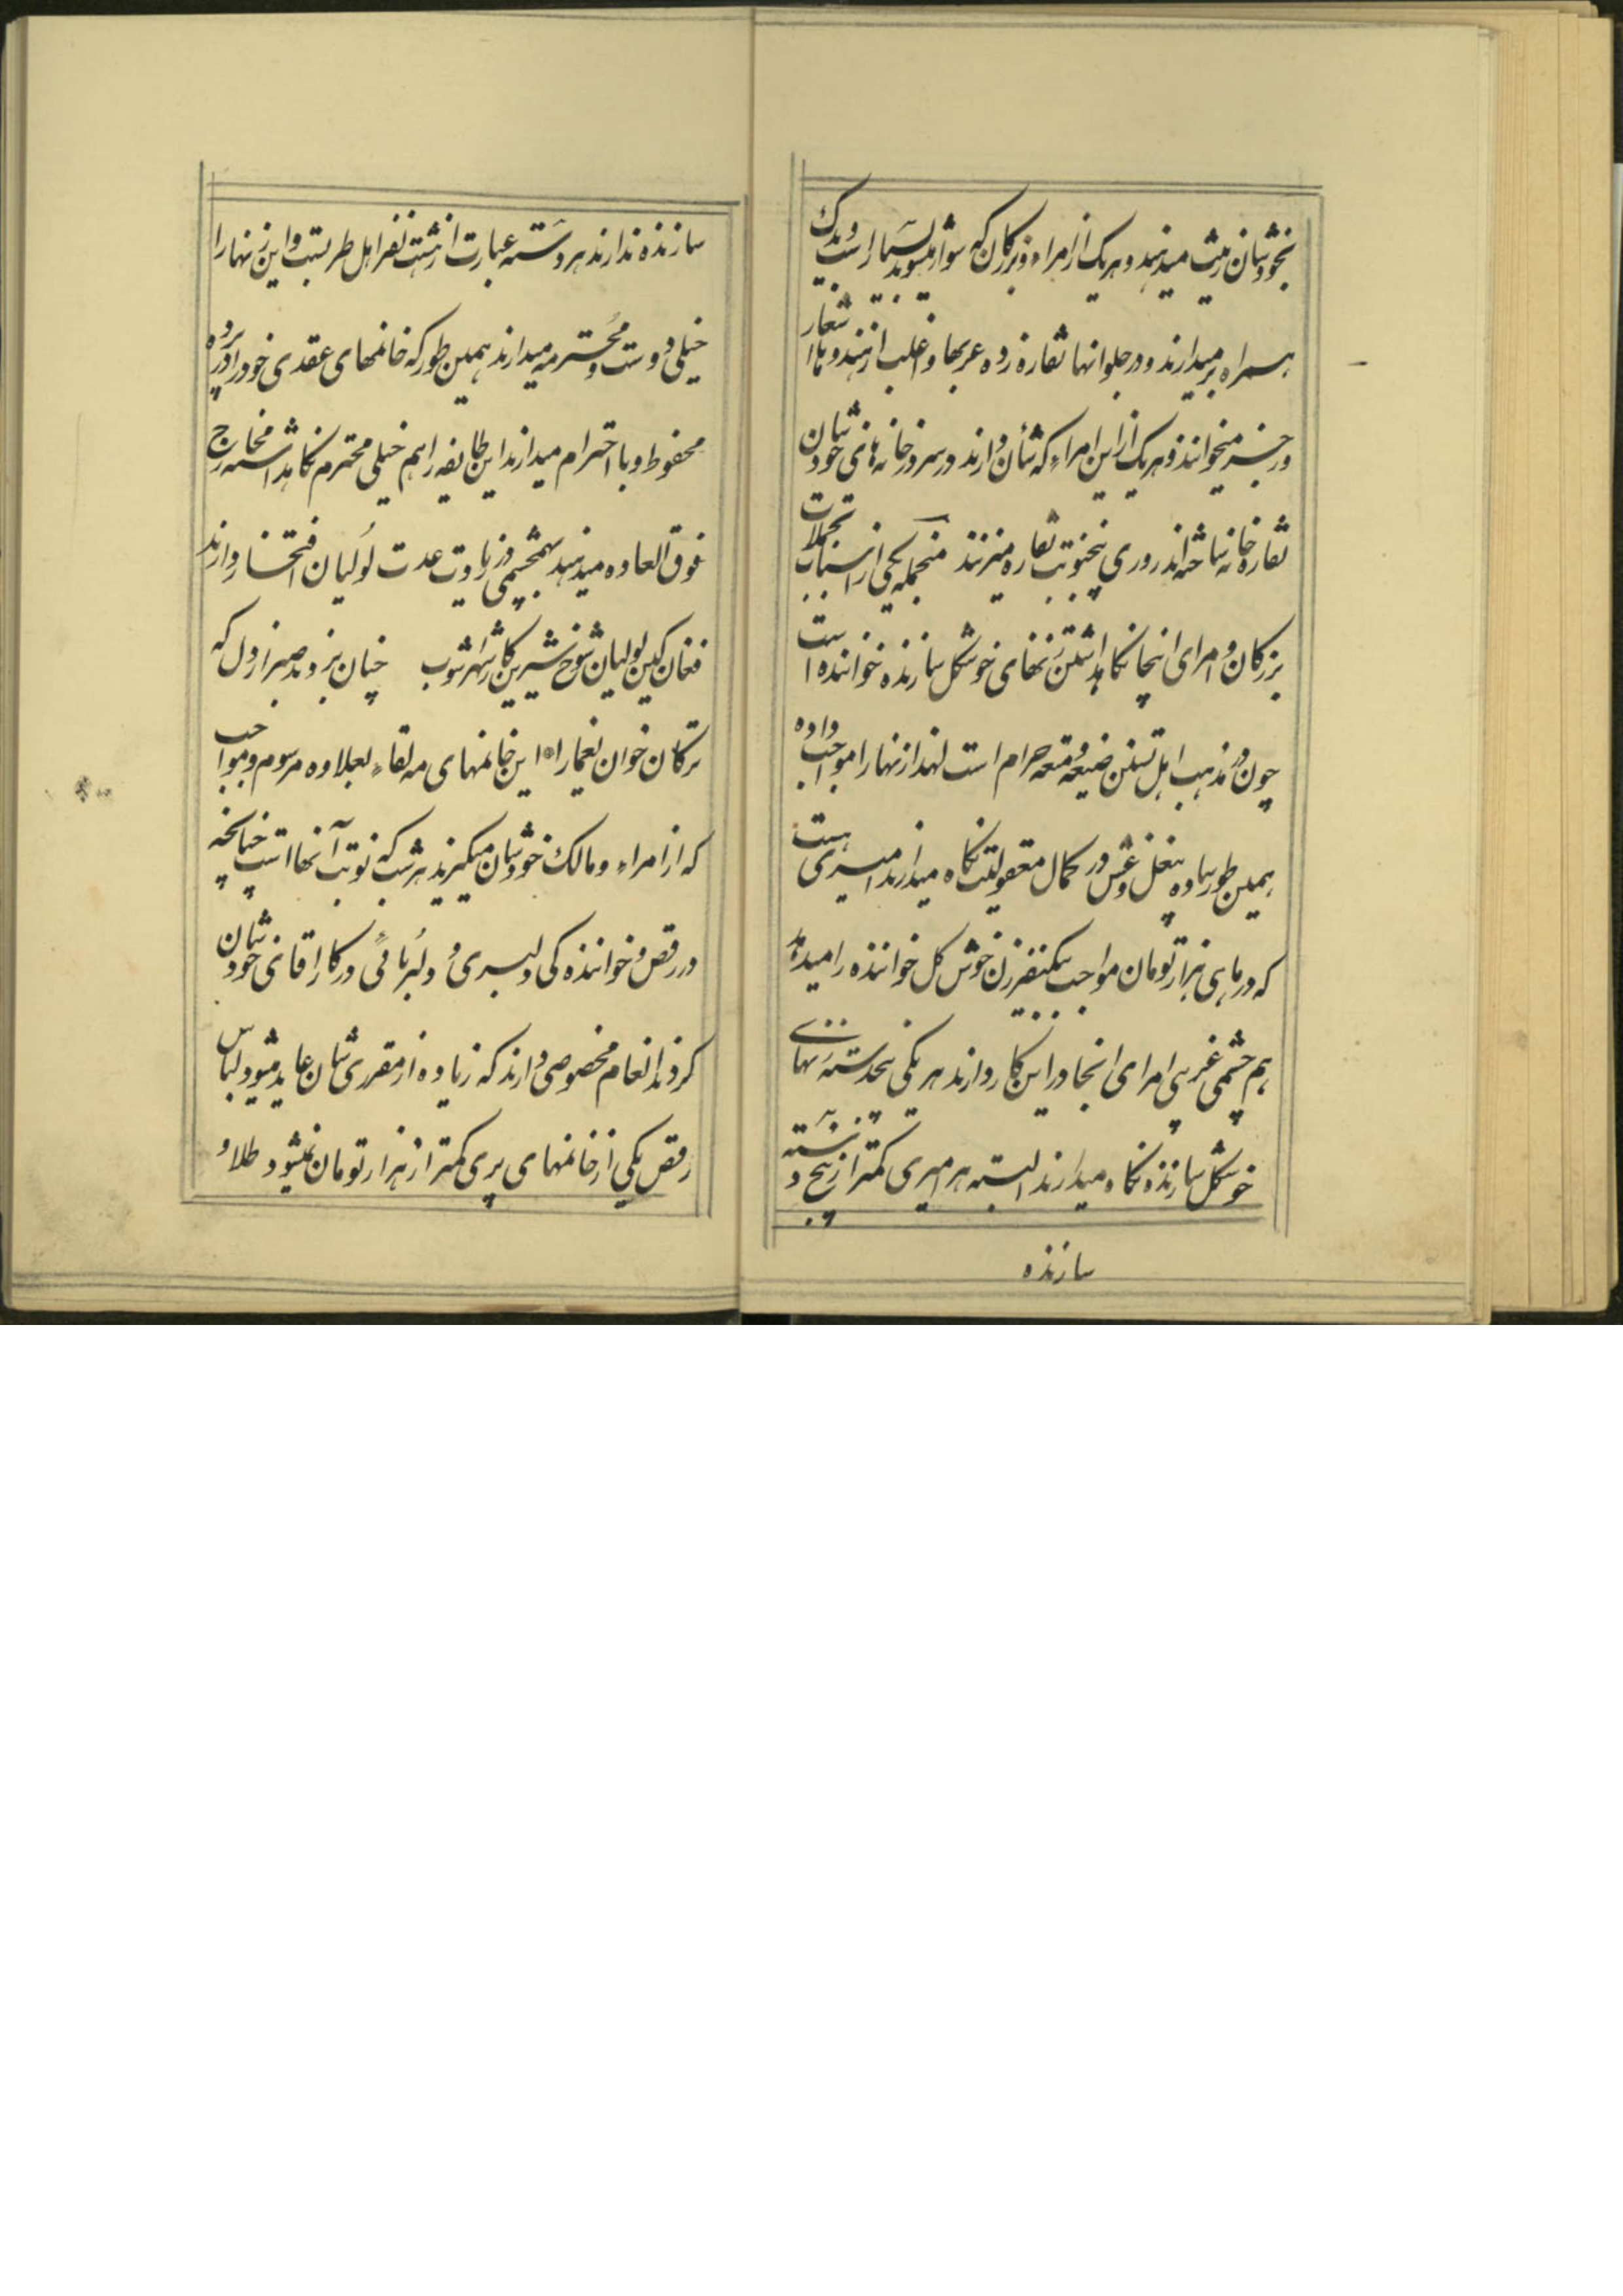 بخودشان زینت میدهند و هریک از امراء و بزرکان که سوار میشوند بسیار است و یدک
همراه برمیدارند و در جلو انها نقاره زده عربها و اغلب از هندوها اشعار
و رجز میخوانند و هریک از این امراء که شأن دارند در سر در خانه های خودشان
نقاره خانه ساخته اند روزی پنجنوبت نقاره میزنند منجمله یکی از اسباب تجملات
بزرکان و امرای اینجا نکاهداشتن زنهای خوشکل سازنده خواننده است
چون در مذهب اهل تسنن ضیغه و متعه حرام است لهذا زنها را مواجب داده
همین طور ساده بیغل و غش در کمال معقولیت نکاه میدارند امیری هست
که در ماهی هزار تومان مواجب یکنفر زن خوش کل خواننده را میدهد
هم چشمی غریبی امرای انجا در این کار دارند هر یکی یکدسته زنهای
خوشکل سازنده نکاه میدارند البته هر امیری کمتر از پنج دسته
سازنده
سازنده ندارند هر دسته عبارت از هشت نفر اهل طربست و این زنها را
خیلی دوست و محترمه میدارند همین طور که خانمهای عقدی خود را در پرده
محفوظ و با احترام میدارند این طایفه را هم خیلی محترم نکاهداشته مخارج
فوق العاده میدهند بهمچشمی در زیادت عدت لولیان افتخار دارند
فغان کین لولیان شوخ شیرین کار شهر اشوب چنان بردند صبر از دل که
ترکان خوان یغما را این خانمهای مه لقاء بعلاوه مرسوم و مواجب
که از امراء و مالک خودشان میکیرند هر شب که نوبت آنها است چنانچه
در رقص و خوانندکی دلبری و دلربائی در کار اقای خودشان
کردند انعام مخصوصی دارند که زیاده از مقرری شان عاید میشود لباس
رقص یکی از خانمهای پری کمتر از هزار تومان نمیشود طلا و